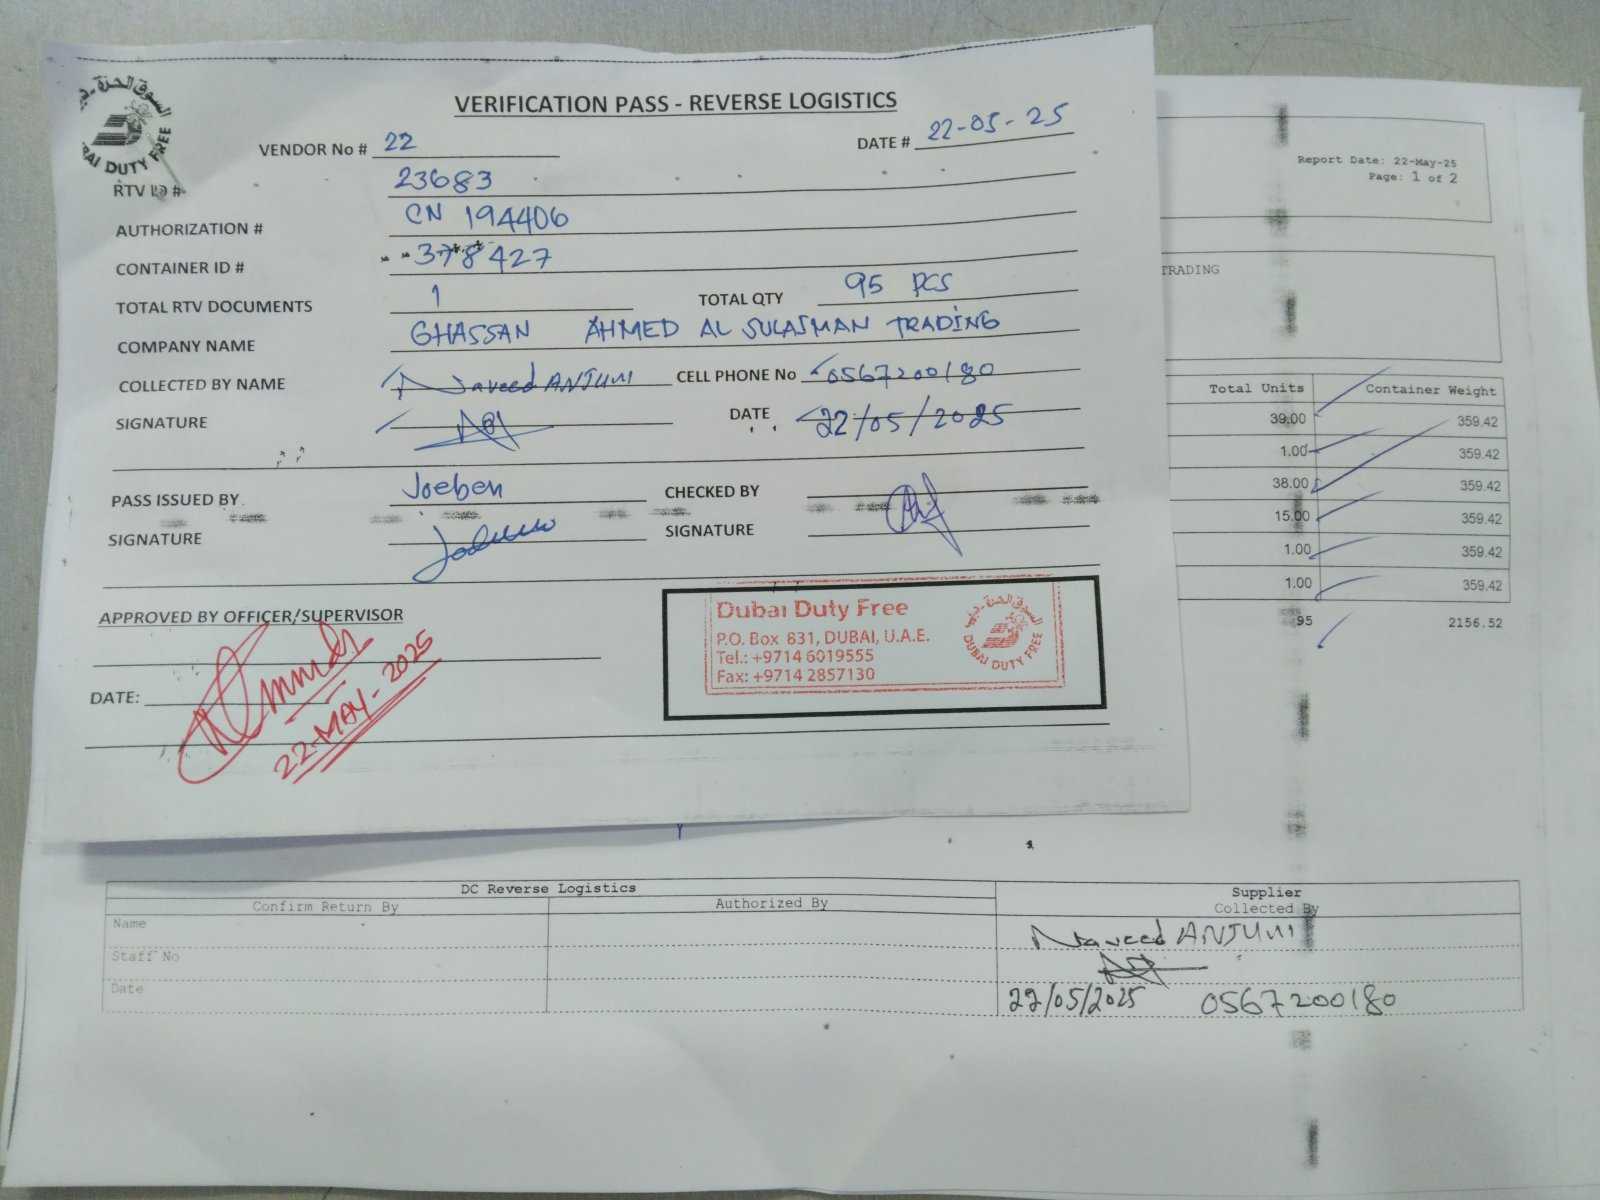 السوق الحرة - دبي
DUBAI DUTY FREE
VERIFICATION PASS - REVERSE LOGISTICS
VENDOR No # 22
DATE # 22-05-25
RTV ID # 23683
AUTHORIZATION # CN 194406
CONTAINER ID # 378427
TOTAL RTV DOCUMENTS 1 TOTAL QTY 95 PCS
COMPANY NAME GHASSAN AHMED AL SULAIMAN TRADING
COLLECTED BY NAME Naveed ANJUM CELL PHONE No 0567200180
SIGNATURE DATE 22/05/2025
PASS ISSUED BY Joeben CHECKED BY
SIGNATURE SIGNATURE
APPROVED BY OFFICER/SUPERVISOR
DATE: 22-MAY-2025
Dubai Duty Free
P.O. Box 831, DUBAI, U.A.E.
Tel.: +9714 6019555
Fax: +9714 2857130
السوق الحرة - دبي
DUBAI DUTY FREE
Report Date: 22-May-25
Page: 1 of 2
TRADING
Total Units Container Weight
39.00 359.42
1.00 359.42
38.00 359.42
15.00 359.42
1.00 359.42
1.00 359.42
95 2156.52
DC Reverse Logistics Supplier
Confirm Return By Authorized By Collected By
Name Naveed ANJUM
Staff No
Date 22/05/2025 0567200180